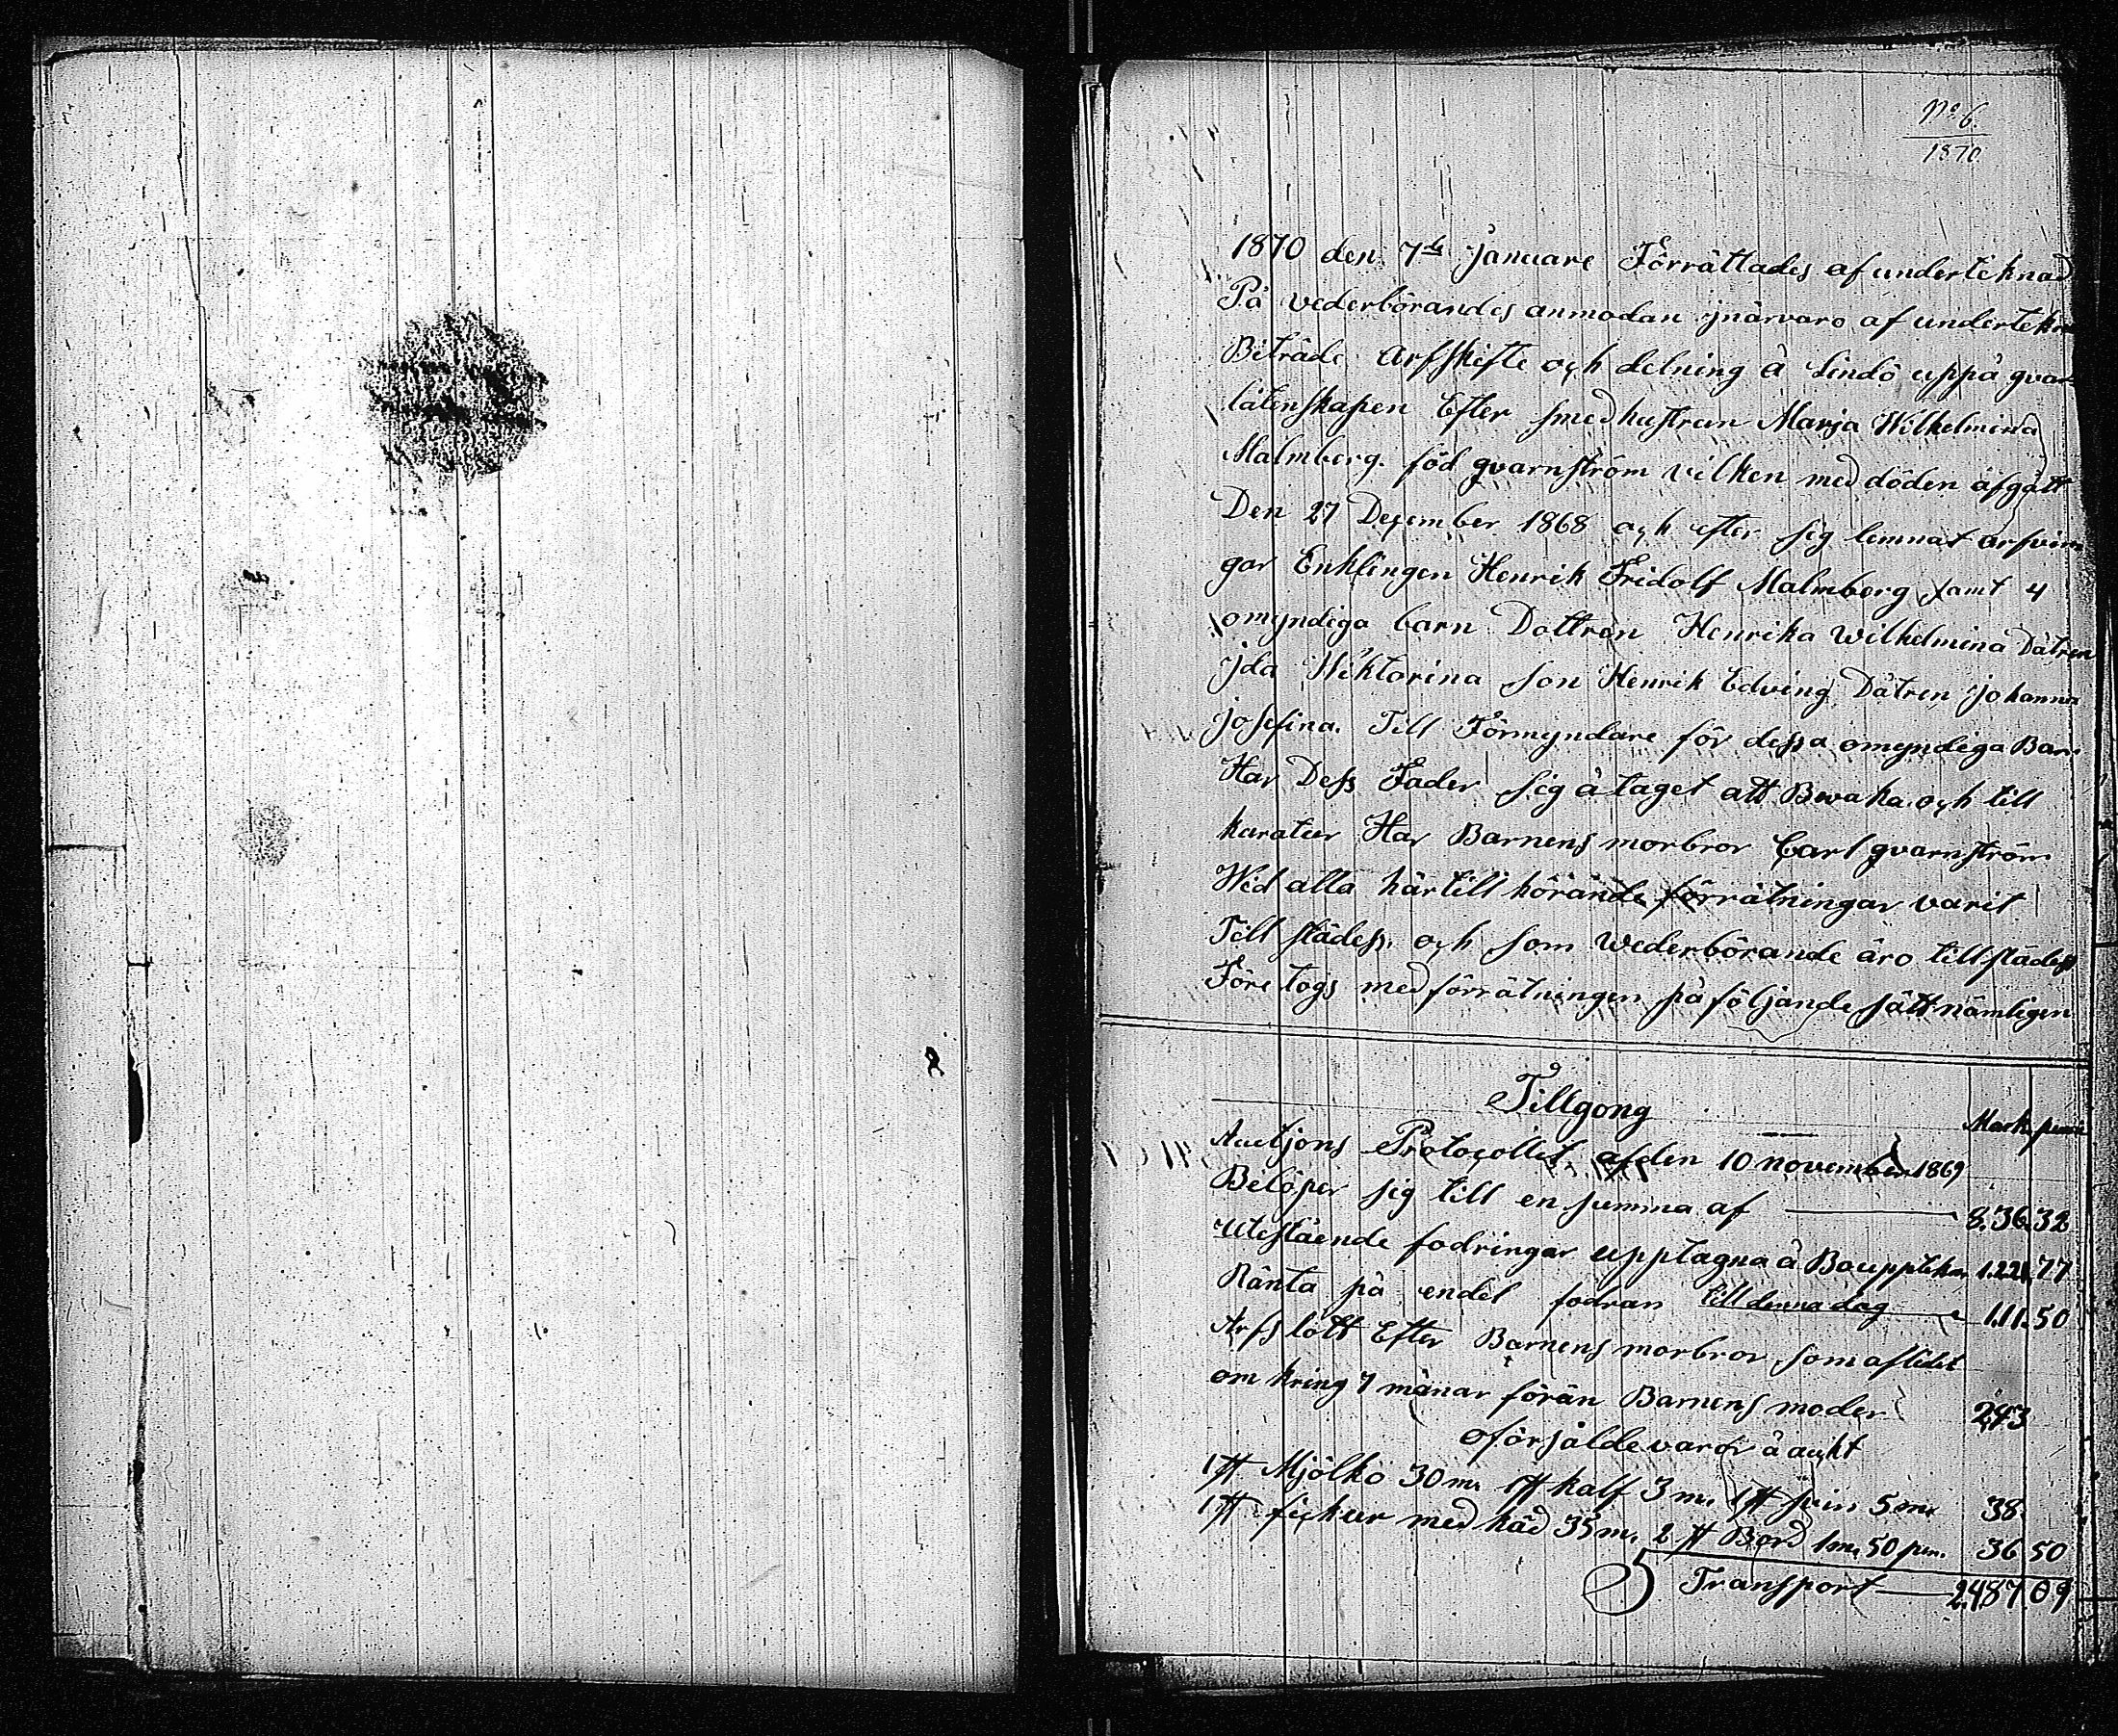 No 6
1870
1870 den 7de januare Förrättades af underteknad
På vederbörandes anmodan jnärvaro af undertekna
Biträde Arfskifte och delning å Lindö uppå qvar=
låtenskapen Efter smedhustrun Maria Wilhelmina
Malmberg. föd qvarnström vilken med döden afgått
Den 27 December 1868 och efter sig lemnat arfvin
gar Enklingen Henrik Fridolf Malmberg samt 4
omyndiga barn Dottrån Henrika Wilhelmina Dåtren
jda Wiktorina son Henrik Edving Dåtren johanna
josefina. Till Förmyndare för dessa omyndiga Barn
Har Dess Fader sig åtaget att Bevaka och till
kuratur Har Barnens morbror Carl qvarnström
Wid alla härtill hörande förrätningar varit
Till städes, och som Wederbörande äro tillstädes
Före togs med förrätningen på följande sätt nämligen
Tillgong
Mark penni
Auctjons Protocollet af den 10 november 1869
Belöper sig till en summa af 8.36.32
Utestående fodringar upptagna å Boupptekn 1221.77
Ränta på endel fodran till denna dag 1.11.50
Arfs lått Efter Barnens morbror som aflidit
om kring 7 månar förän Barnens moder 243
oförsålde varor å auckt
1 st Mjölko 30 m. 1 st kalf 3 m. 1 st svin 5 m. 38
1 st fickur med käd 35 m. 2 st Bord 1 m. 50 pen. 36 50
Transport 2487.09